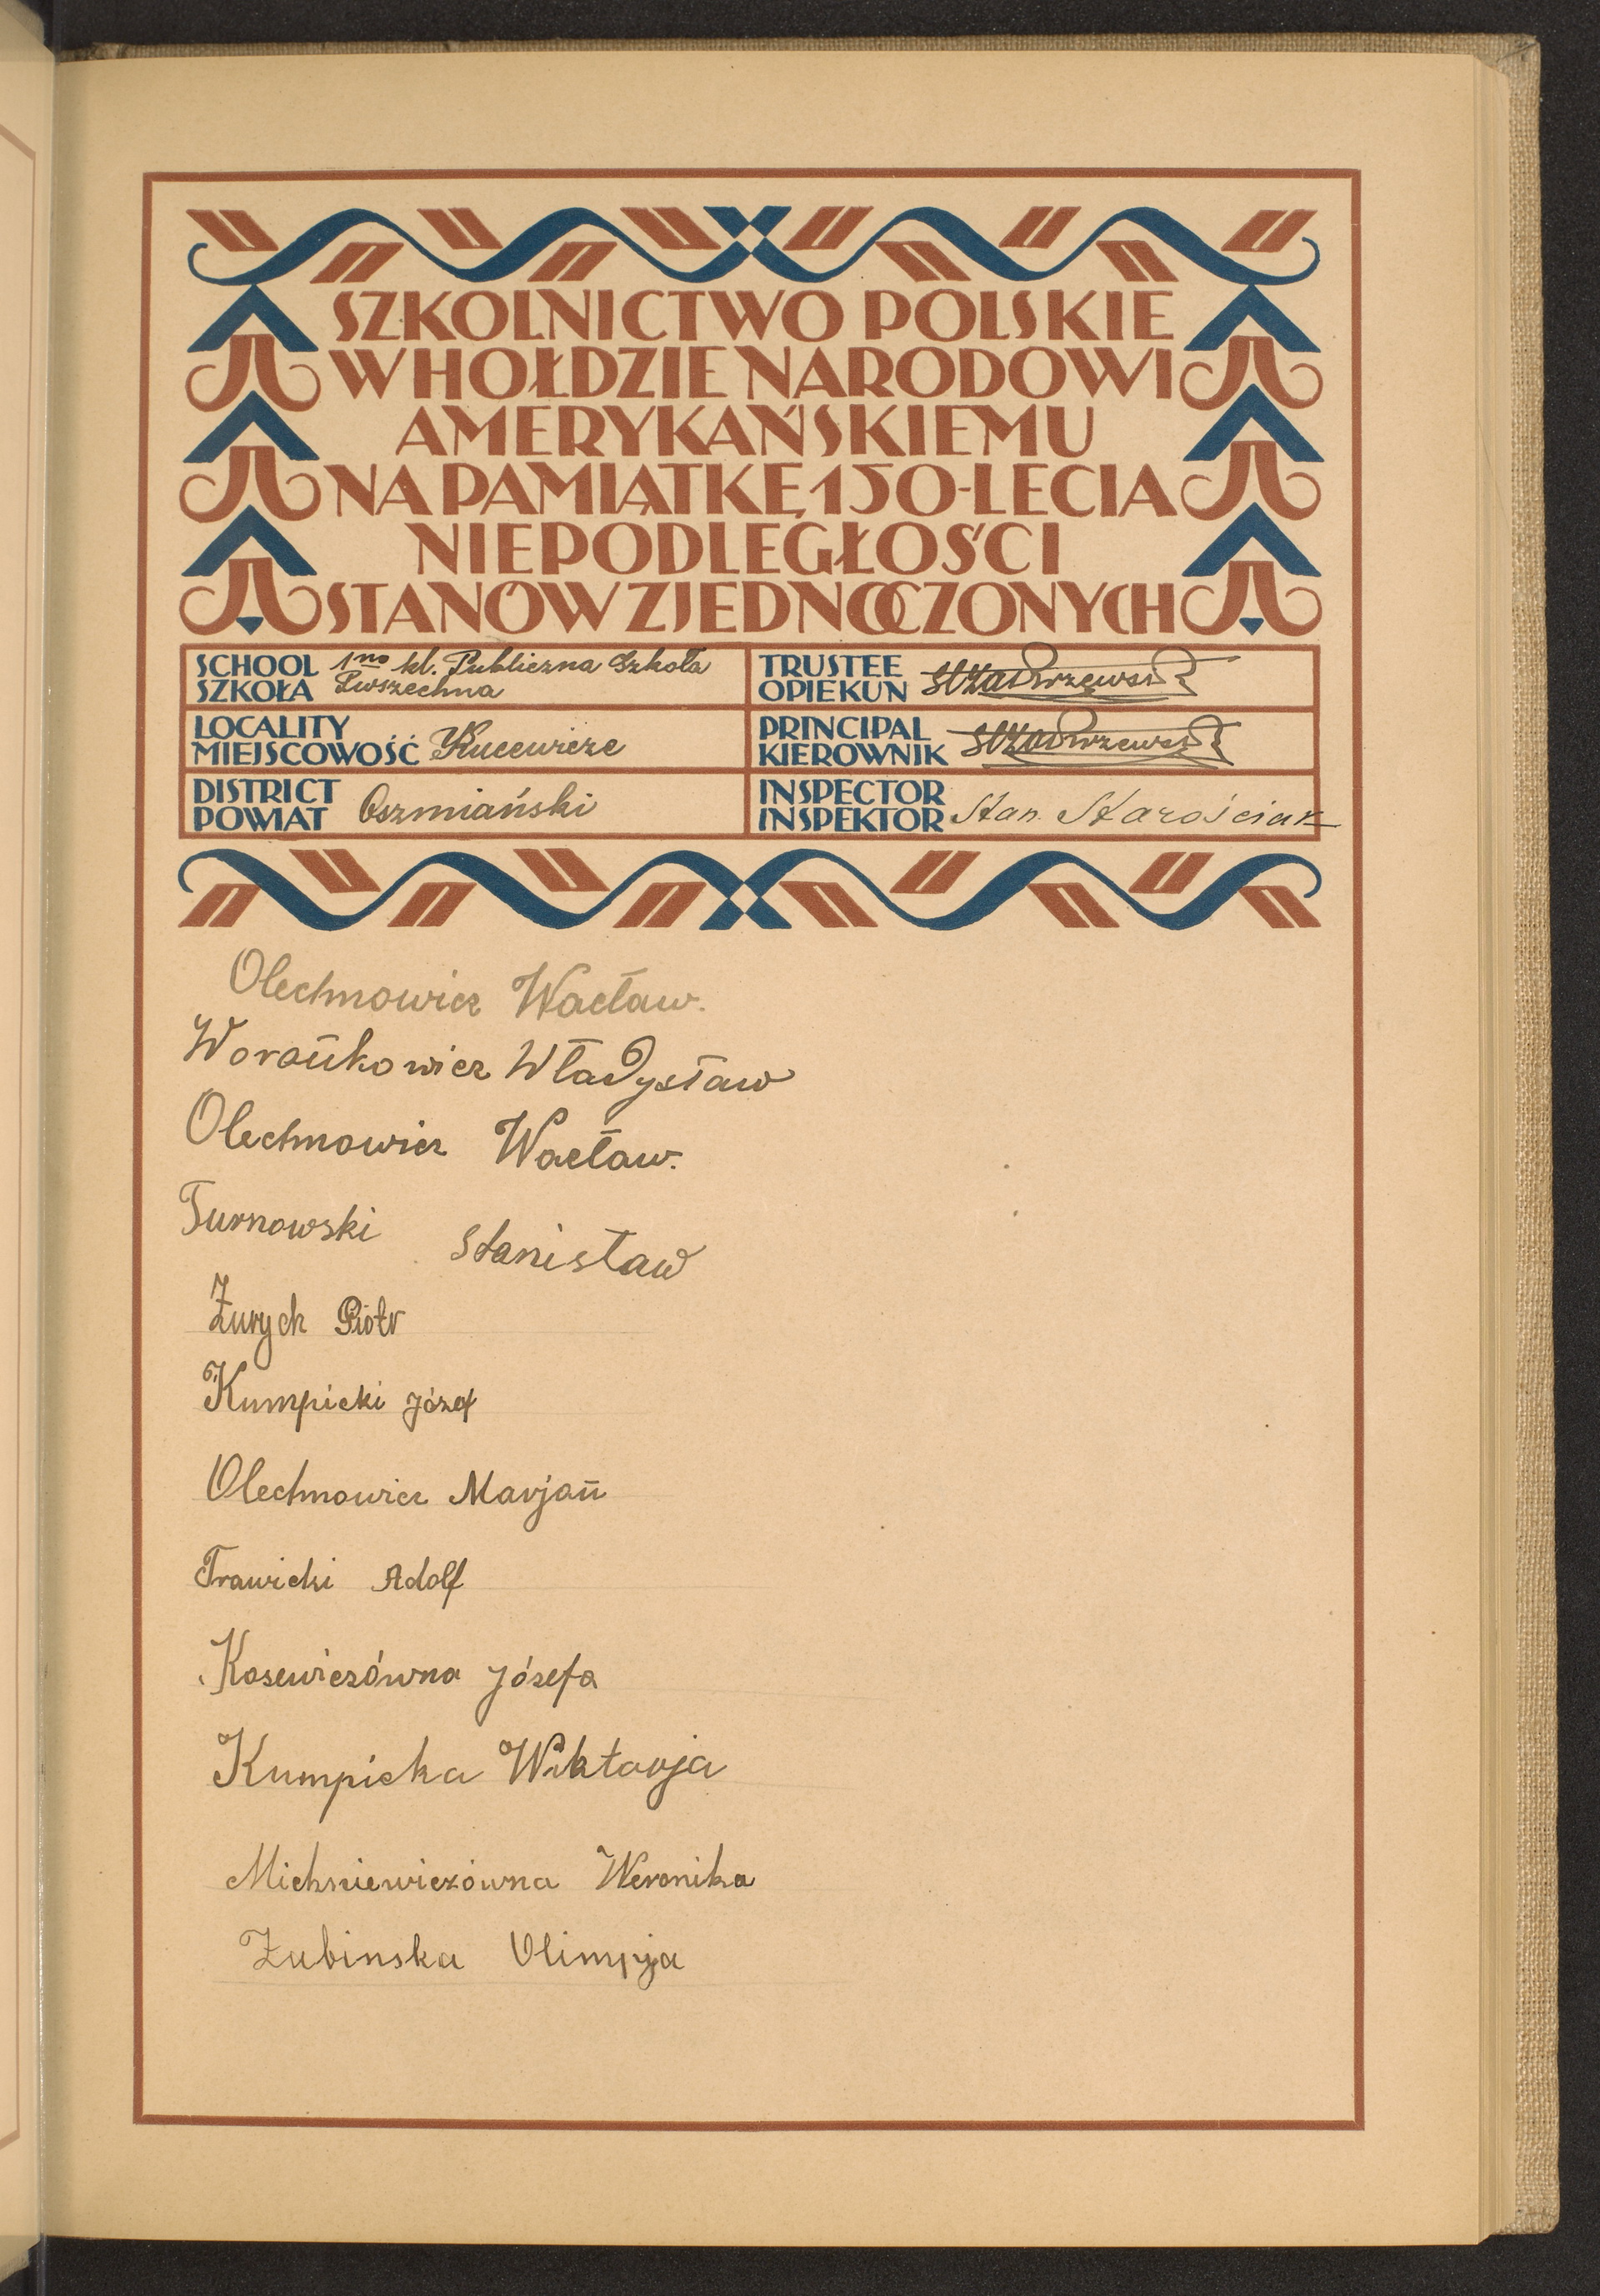 SZKOLNICTWO POLSKIE
W HOŁDZIE NARODOWI
AMERYKAŃSKIEMU
NA PAMIĄTKĘ 150-LECIA
NIEPODLEGŁOŚCI
STANÓW ZJEDNOCZONYCH
SCHOOL SZKOŁA 1no kl. Publiczna Szkoła
Pwszechna
TRUSTEE
OPIEKUN
LOCALITY
MIEJSCOWOŚĆ Kucewicze
PRINCIPAL
KIEROWNIK
DISTRICT
POWIAT Oszmiański
INSPECTOR
INSPEKTOR Stan. Starościak
Olechnowicz Wacław.
Worańkowicz Władysław
Olechnowicz Wacław.
Turnowski Stanisław
Żurych Piotr
Kumpicki Józef
Olechnowicz Marjań
Trawicki Adolf
Kosewiczówna Józefa
Kumpicka Wiktorja
Michniewiczówna Weronika
Żubinska Olimpja